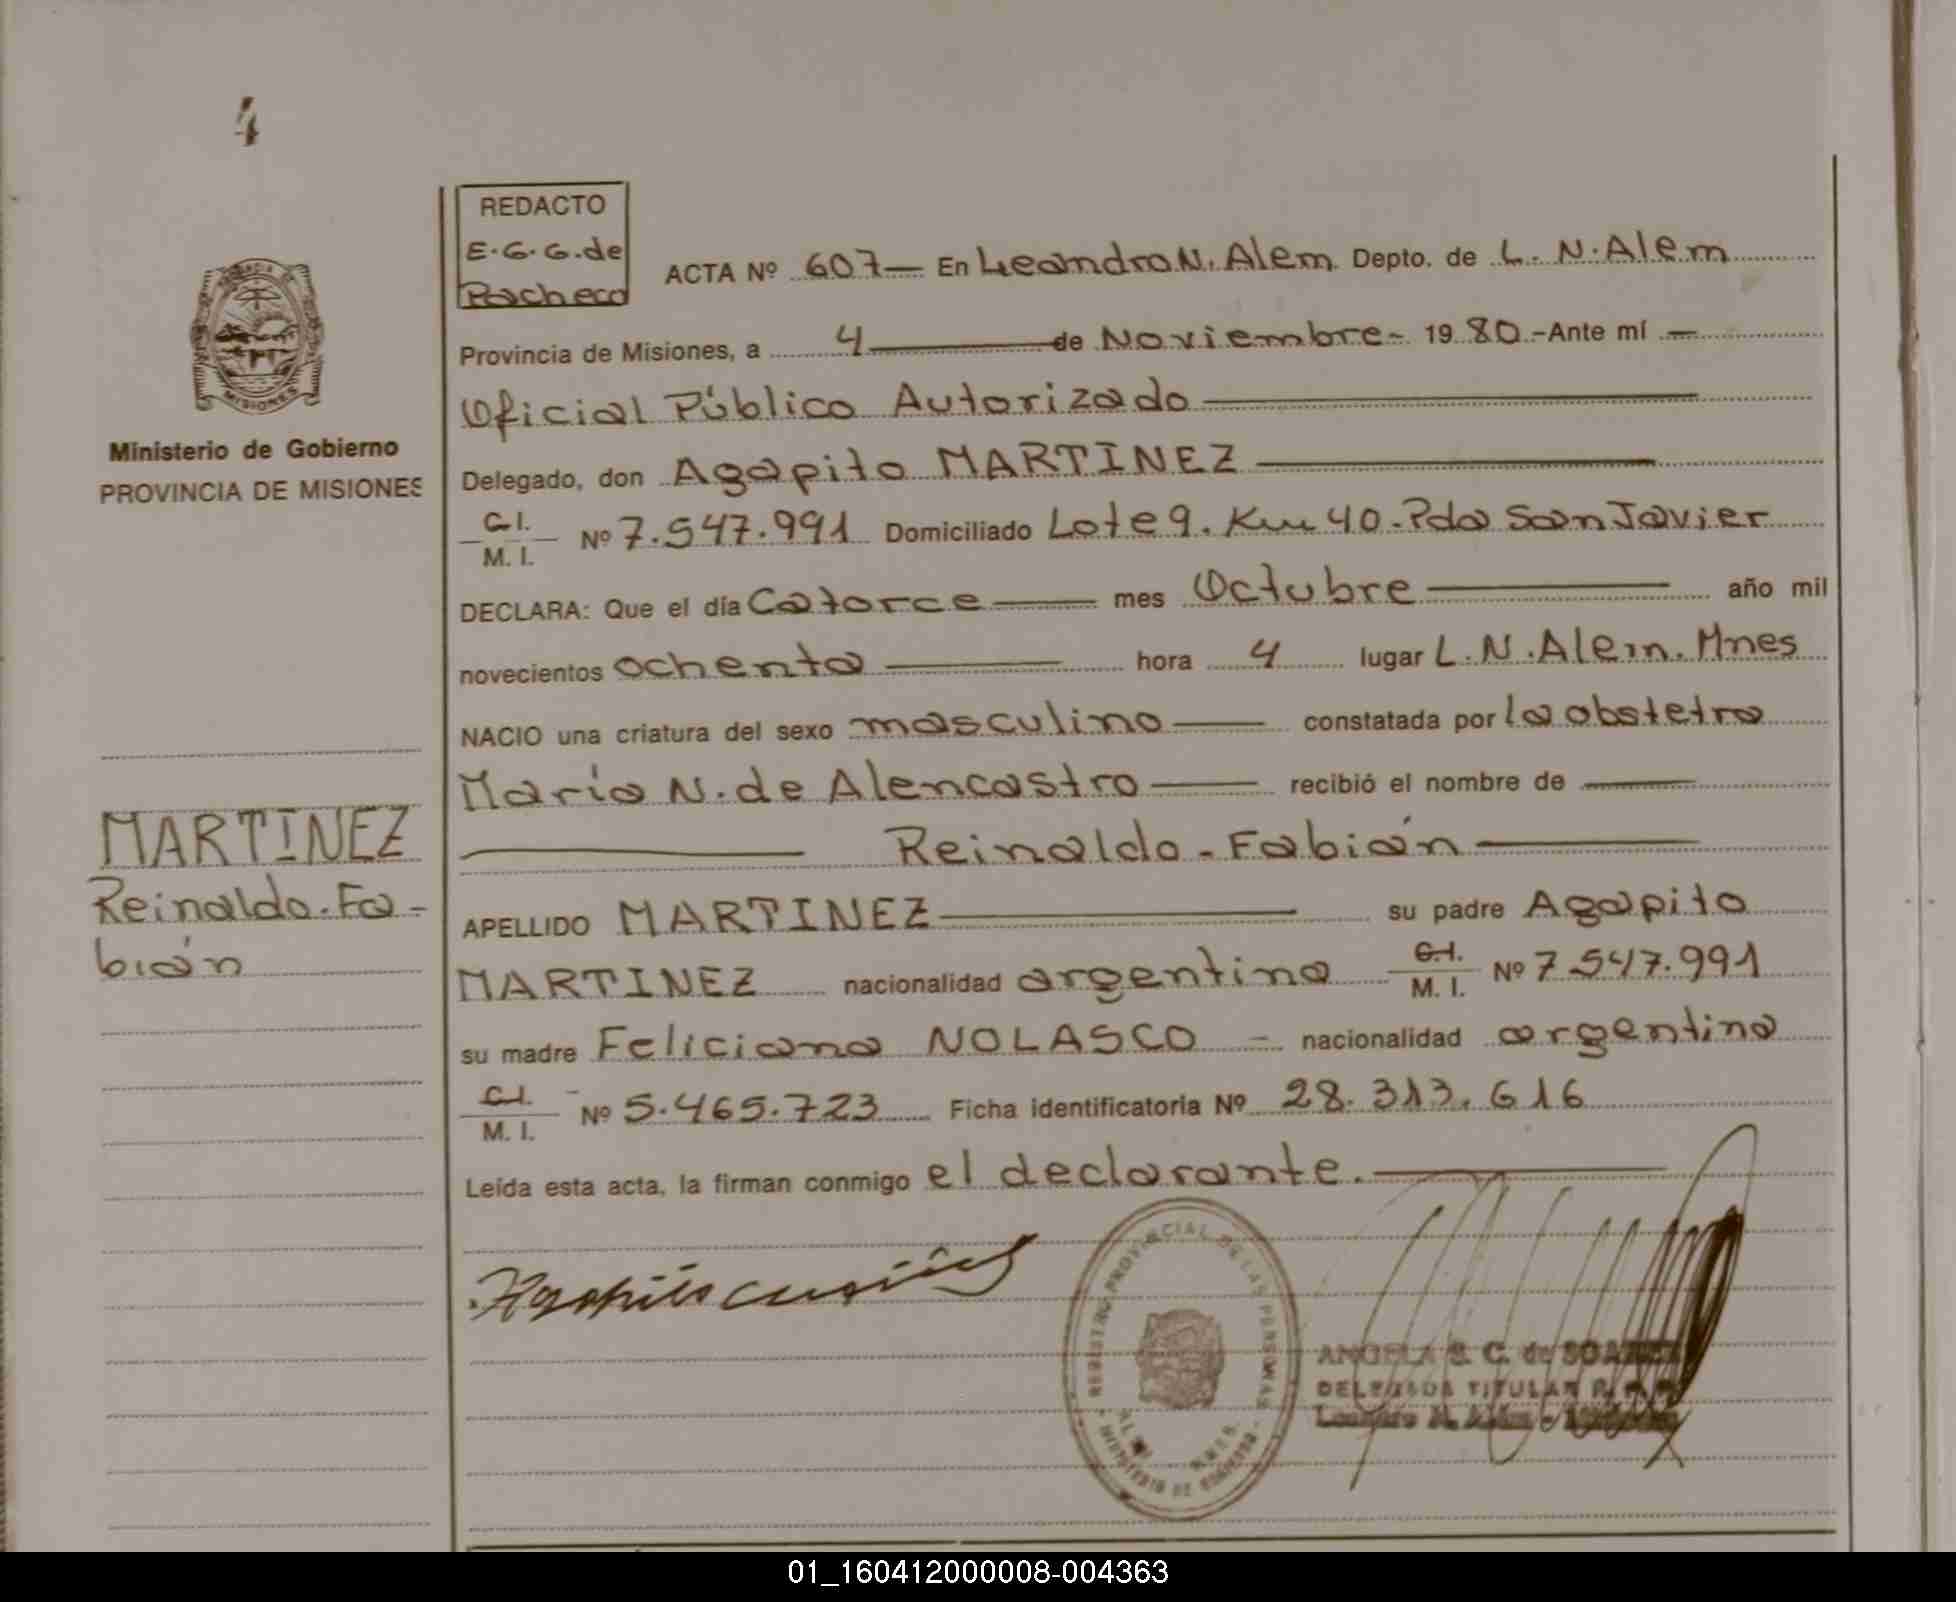 4
REDACTO
E.G.G.de
Pacheco
ACTA Nº 607— En Leandro N. Alem Depto. de L. N. Alem
Provincia de Misiones, a 4 de Noviembre- 1980.-Ante mí —
Oficial Público Autorizado
Delegado, don Agapito MARTINEZ
C.I. / M. I. Nº 7.547.991 Domiciliado Lote 9. Km 40. Pda San Javier
DECLARA: Que el día Catorce mes Octubre año mil
novecientos ochenta hora 4 lugar L. N. Alem. Mnes
NACIO una criatura del sexo masculino constatada por la obstetra
María N. de Alencastro recibió el nombre de
Reinaldo-Fabián
APELLIDO MARTINEZ su padre Agapito
MARTINEZ nacionalidad argentina C.I. / M. I. Nº 7.547.991
su madre Feliciana NOLASCO - nacionalidad argentina
C.I. / M. I. Nº 5.465.723 Ficha identificatoria Nº 28.313.616
Leída esta acta, la firman conmigo el declarante.
MISIONES
Ministerio de Gobierno
PROVINCIA DE MISIONES
MARTINEZ
Reinaldo-Fa-
bián
REGISTRO PROVINCIAL DE LAS PERSONAS
MINISTERIO DE GOBIERNO
ANGELA S. C. de
DELEGADA TITULAR R. P. P.
Leandro N. Alem - Misiones
01_160412000008-004363